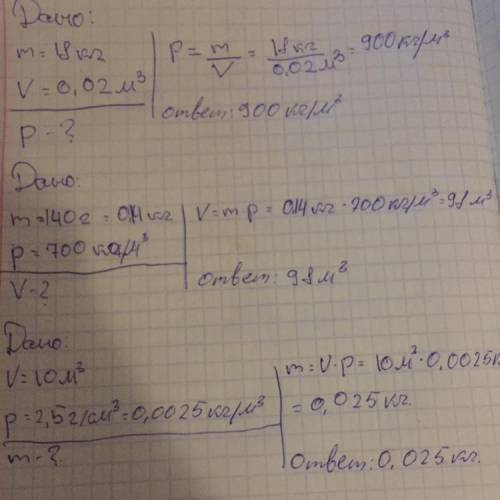 Дано:
m = 18 кг
V = 0,02 м³
p - ?
p = m/V = 18 кг/0,02 м³ = 900 кг/м³
ответ: 900 кг/м³
Дано:
m = 140 г = 0,14 кг
p = 700 кг/м³
V - ?
V = m p = 0,14 кг · 700 кг/м³ = 98 м³
ответ: 98 м³
Дано:
V = 10 м³
p = 2,5 г/см³ = 0,0025 кг/м³
m - ?
m = V · p = 10 м³ · 0,0025 к
= 0,025 кг.
Ответ: 0,025 кг.